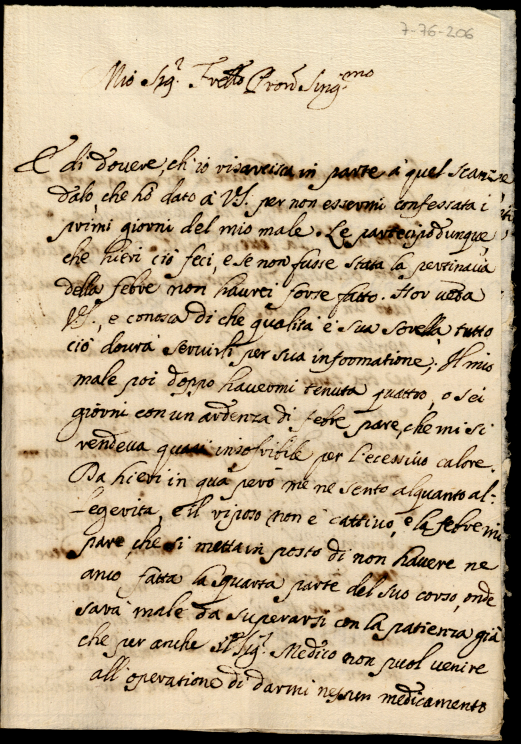 7-76-206
Mio Sig.r Frello Pron Sing.mo
È di dovere, ch'io risarcisca in parte à quel scanz
dalo, che hò dato à VS. per non essermi confessata i
primi giorni del mio male. Le partecipo dunque,
che hieri ciò feci, e se non fusse stata la pertinacia
della febre non haurei forse fatto. Hor veda
VS., e conosca di che qualità è sua sorella, tutto
ciò dourà seruirli per sua informatione; Il mio
male poi doppo hauermi tenuta quattro, o sei
giorni con un ardenza di febre pare, che mi si
rendeva quasi insofribile per l'ecessiuo calore.
Da hieri in quà però me ne sento alquanto al-
-legerita, e il riposo non è cattiuo, e la febre mi
pare, che si metta in posto di non hauere ne
anco fatta la quarta parte del suo corso, onde
sarà male da superarsi con la patienza già
che per anche il Sig.r Medico non puol uenire
all'operatione di darmi nessun medicamento